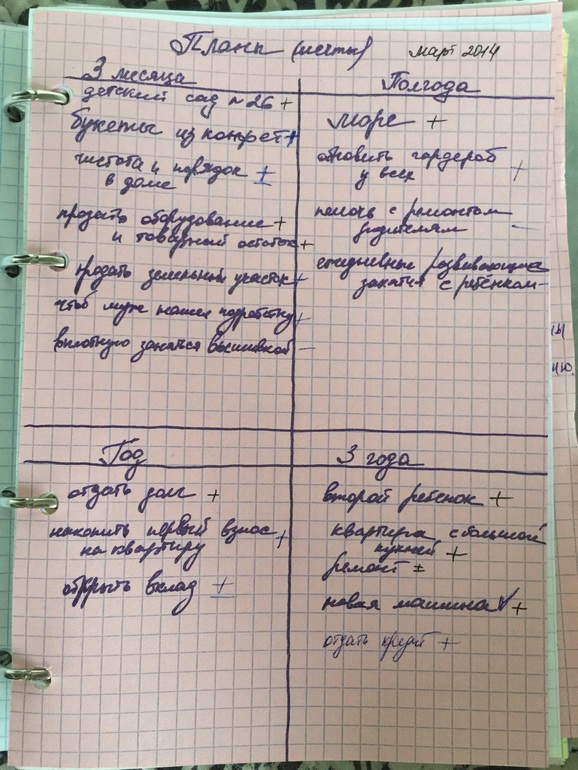 Планы (мечты) март 2014
3 месяца
детский сад №26 +
букеты из конфет +
чистота и порядок ±
в доме
продать оборудование +
и товарный остаток +
продать земельный участок +
чтоб муж нашел подработку +
вплотную заняться вышивкой –
Полгода
море +
обновить гардероб
у всех +
помочь с ремонтом
родителям –
ежедневные развивающие
занятия с ребенком –
Год
отдать долг +
накопить первый взнос +
на квартиру
открыть вклад ±
3 года
второй ребенок +
квартира с большой
кухней +
ремонт ±
новая машина V +
отдать кредит +
ню.